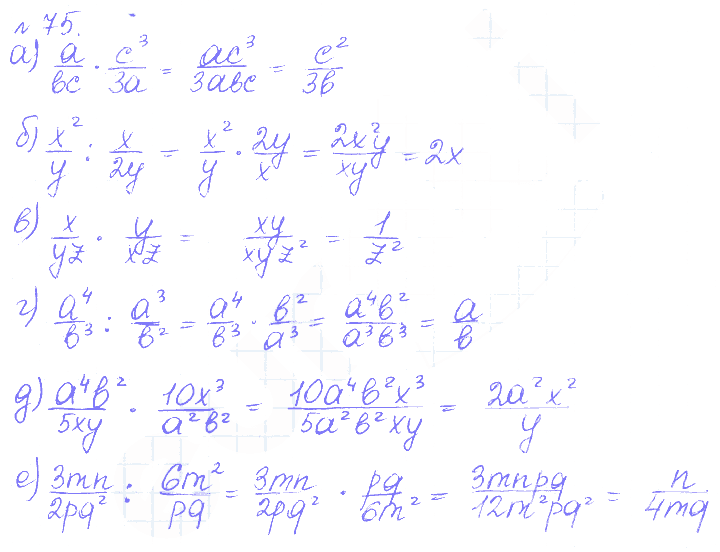 № 75.
а) a/bc · c³/3a = ac³/3abc = c²/3b
б) x²/y : x/2y = x²/y · 2y/x = 2x²y/xy = 2x
в) x/yz · y/xz = xy/xyz² = 1/z²
г) a⁴/b³ : a³/b² = a⁴/b³ · b²/a³ = a⁴b²/a³b³ = a/b
д) a⁴b²/5xy · 10x³/a²b² = 10a⁴b²x³/5a²b²xy = 2a²x²/y
е) 3mn/2pq² : 6m²/pq = 3mn/2pq² · pq/6m² = 3mnpq/12m²pq² = n/4mq